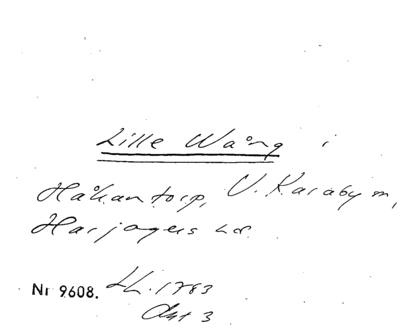 Lille Wång i
Håkantorp, V. Karaby sn,
Harjagers hd.
Nr 9608. LL. 1783
Akt 3